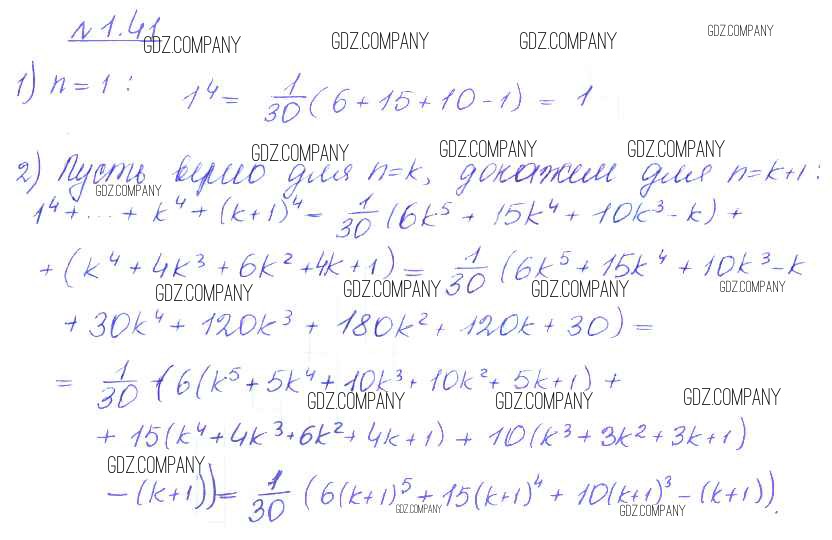 N 1.41
GDZ.COMPANY GDZ.COMPANY GDZ.COMPANY GDZ.COMPANY
1) n = 1 : 1⁴ = 1/30 (6 + 15 + 10 - 1) = 1
GDZ.COMPANY GDZ.COMPANY GDZ.COMPANY
2) Пусть верно для n=k, докажем для n=k+1 :
GDZ.COMPANY
1⁴ + ... + k⁴ + (k+1)⁴ = 1/30 (6k⁵ + 15k⁴ + 10k³ - k) +
+ (k⁴ + 4k³ + 6k² + 4k + 1) = 1/30 (6k⁵ + 15k⁴ + 10k³ - k
GDZ.COMPANY GDZ.COMPANY GDZ.COMPANY GDZ.COMPANY
+ 30k⁴ + 120k³ + 180k² + 120k + 30) =
= 1/30 (6(k⁵ + 5k⁴ + 10k³ + 10k² + 5k + 1) +
GDZ.COMPANY GDZ.COMPANY GDZ.COMPANY
+ 15(k⁴ + 4k³ + 6k² + 4k + 1) + 10(k³ + 3k² + 3k + 1)
GDZ.COMPANY
- (k+1)) = 1/30 (6(k+1)⁵ + 15(k+1)⁴ + 10(k+1)³ - (k+1)).
GDZ.COMPANY GDZ.COMPANY